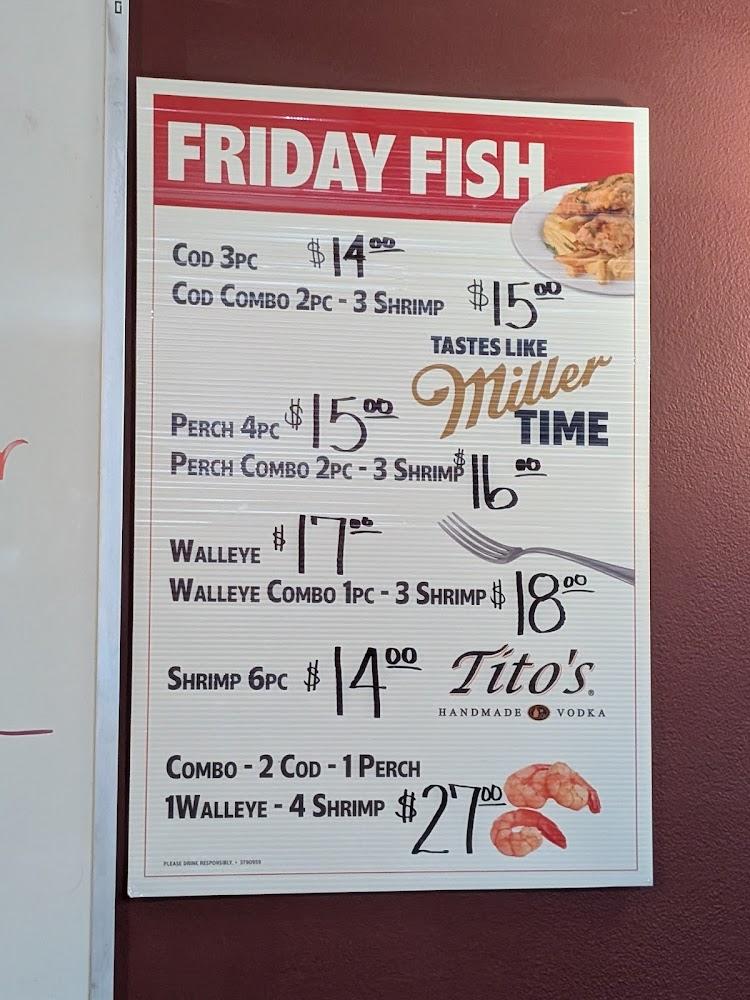 FRIDAY FISH
COD 3PC $14.00
COD COMBO 2PC - 3 SHRIMP $15.00
TASTES LIKE
Miller
TIME
PERCH 4PC $15.00
PERCH COMBO 2PC - 3 SHRIMP $16.00
WALLEYE $17.00
WALLEYE COMBO 1PC - 3 SHRIMP $18.00
SHRIMP 6PC $14.00
Tito's®
HANDMADE VODKA
COMBO - 2 COD - 1 PERCH
1WALLEYE - 4 SHRIMP $27.00
PLEASE DRINK RESPONSIBLY. • 3790959